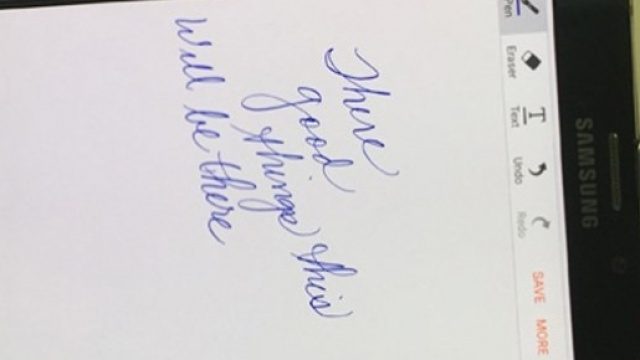 SAMSUNG
Pen
Eraser
Text
Undo
Redo
SAVE
MORE
There
good
things this
Will be there